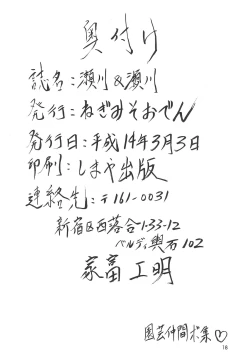 奥付け
誌名：瀬川&瀬川
発行：ねぎみそおでん
発行日：平成14年3月3日
印刷：しまや出版
連絡先：〒161-0031
新宿区西落合1-33-12
ベルディ輿石102
家畜工明
園芸仲間求集♡
18